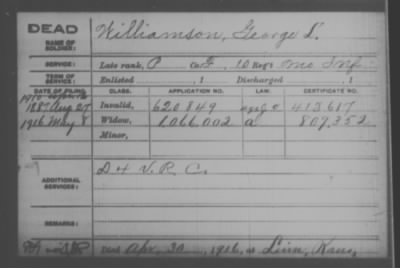 DEAD
NAME OF SOLDIER:
Williamson, George L.
SERVICE:
Late rank, P Co. F, 10 Reg't Mo Inf.
TERM OF SERVICE:
Enlisted , 1 Discharged , 1
DATE OF FILING. CLASS. APPLICATION NO. LAW. CERTIFICATE NO.
1887 Aug 25 Invalid, 620849 413617
1916 May 8 Widow, 1066,002 a 809,352
Minor,
ADDITIONAL SERVICES:
D H V. R. C.
REMARKS:
Died Apr. 30, 1916, at Linn, Kans,